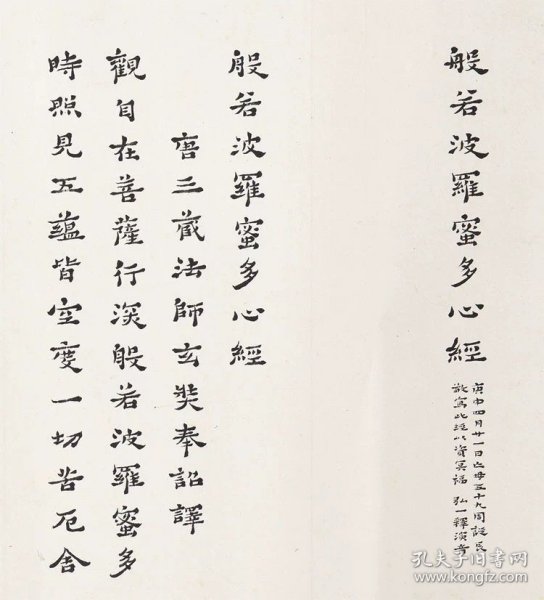 般若波羅蜜多心經
庚申四月廿一日亡母五十九周誕辰
敬寫此經以資冥福 弘一釋演音
般若波羅蜜多心經
唐三藏法師玄奘奉詔譯
觀自在菩薩行深般若波羅蜜多
時照見五蘊皆空度一切苦厄舍
孔夫子旧书网
kongfz.com